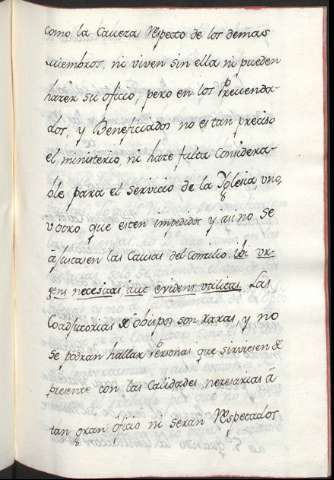 como la Caveza respecto de los demas
miembros, ni viven sin ella ni pueden
hazer su oficio, pero en los Prevenda-
dos, y Beneficiados no es tan preciso
el ministerio, ni haze falta considera-
ble para el servicio de la Yglesia uno,
u otro que esten impedidos y asi no se
ajustan en las Causas del Concilio ibi ur-
gens necesitas aut evidens utilitas. Las
Coadjutorias de obispos son raras, y no
se podran hallar Personas que sirviesen de
presente con las Calidades necesarias à
tan gran oficio ni seran respetados